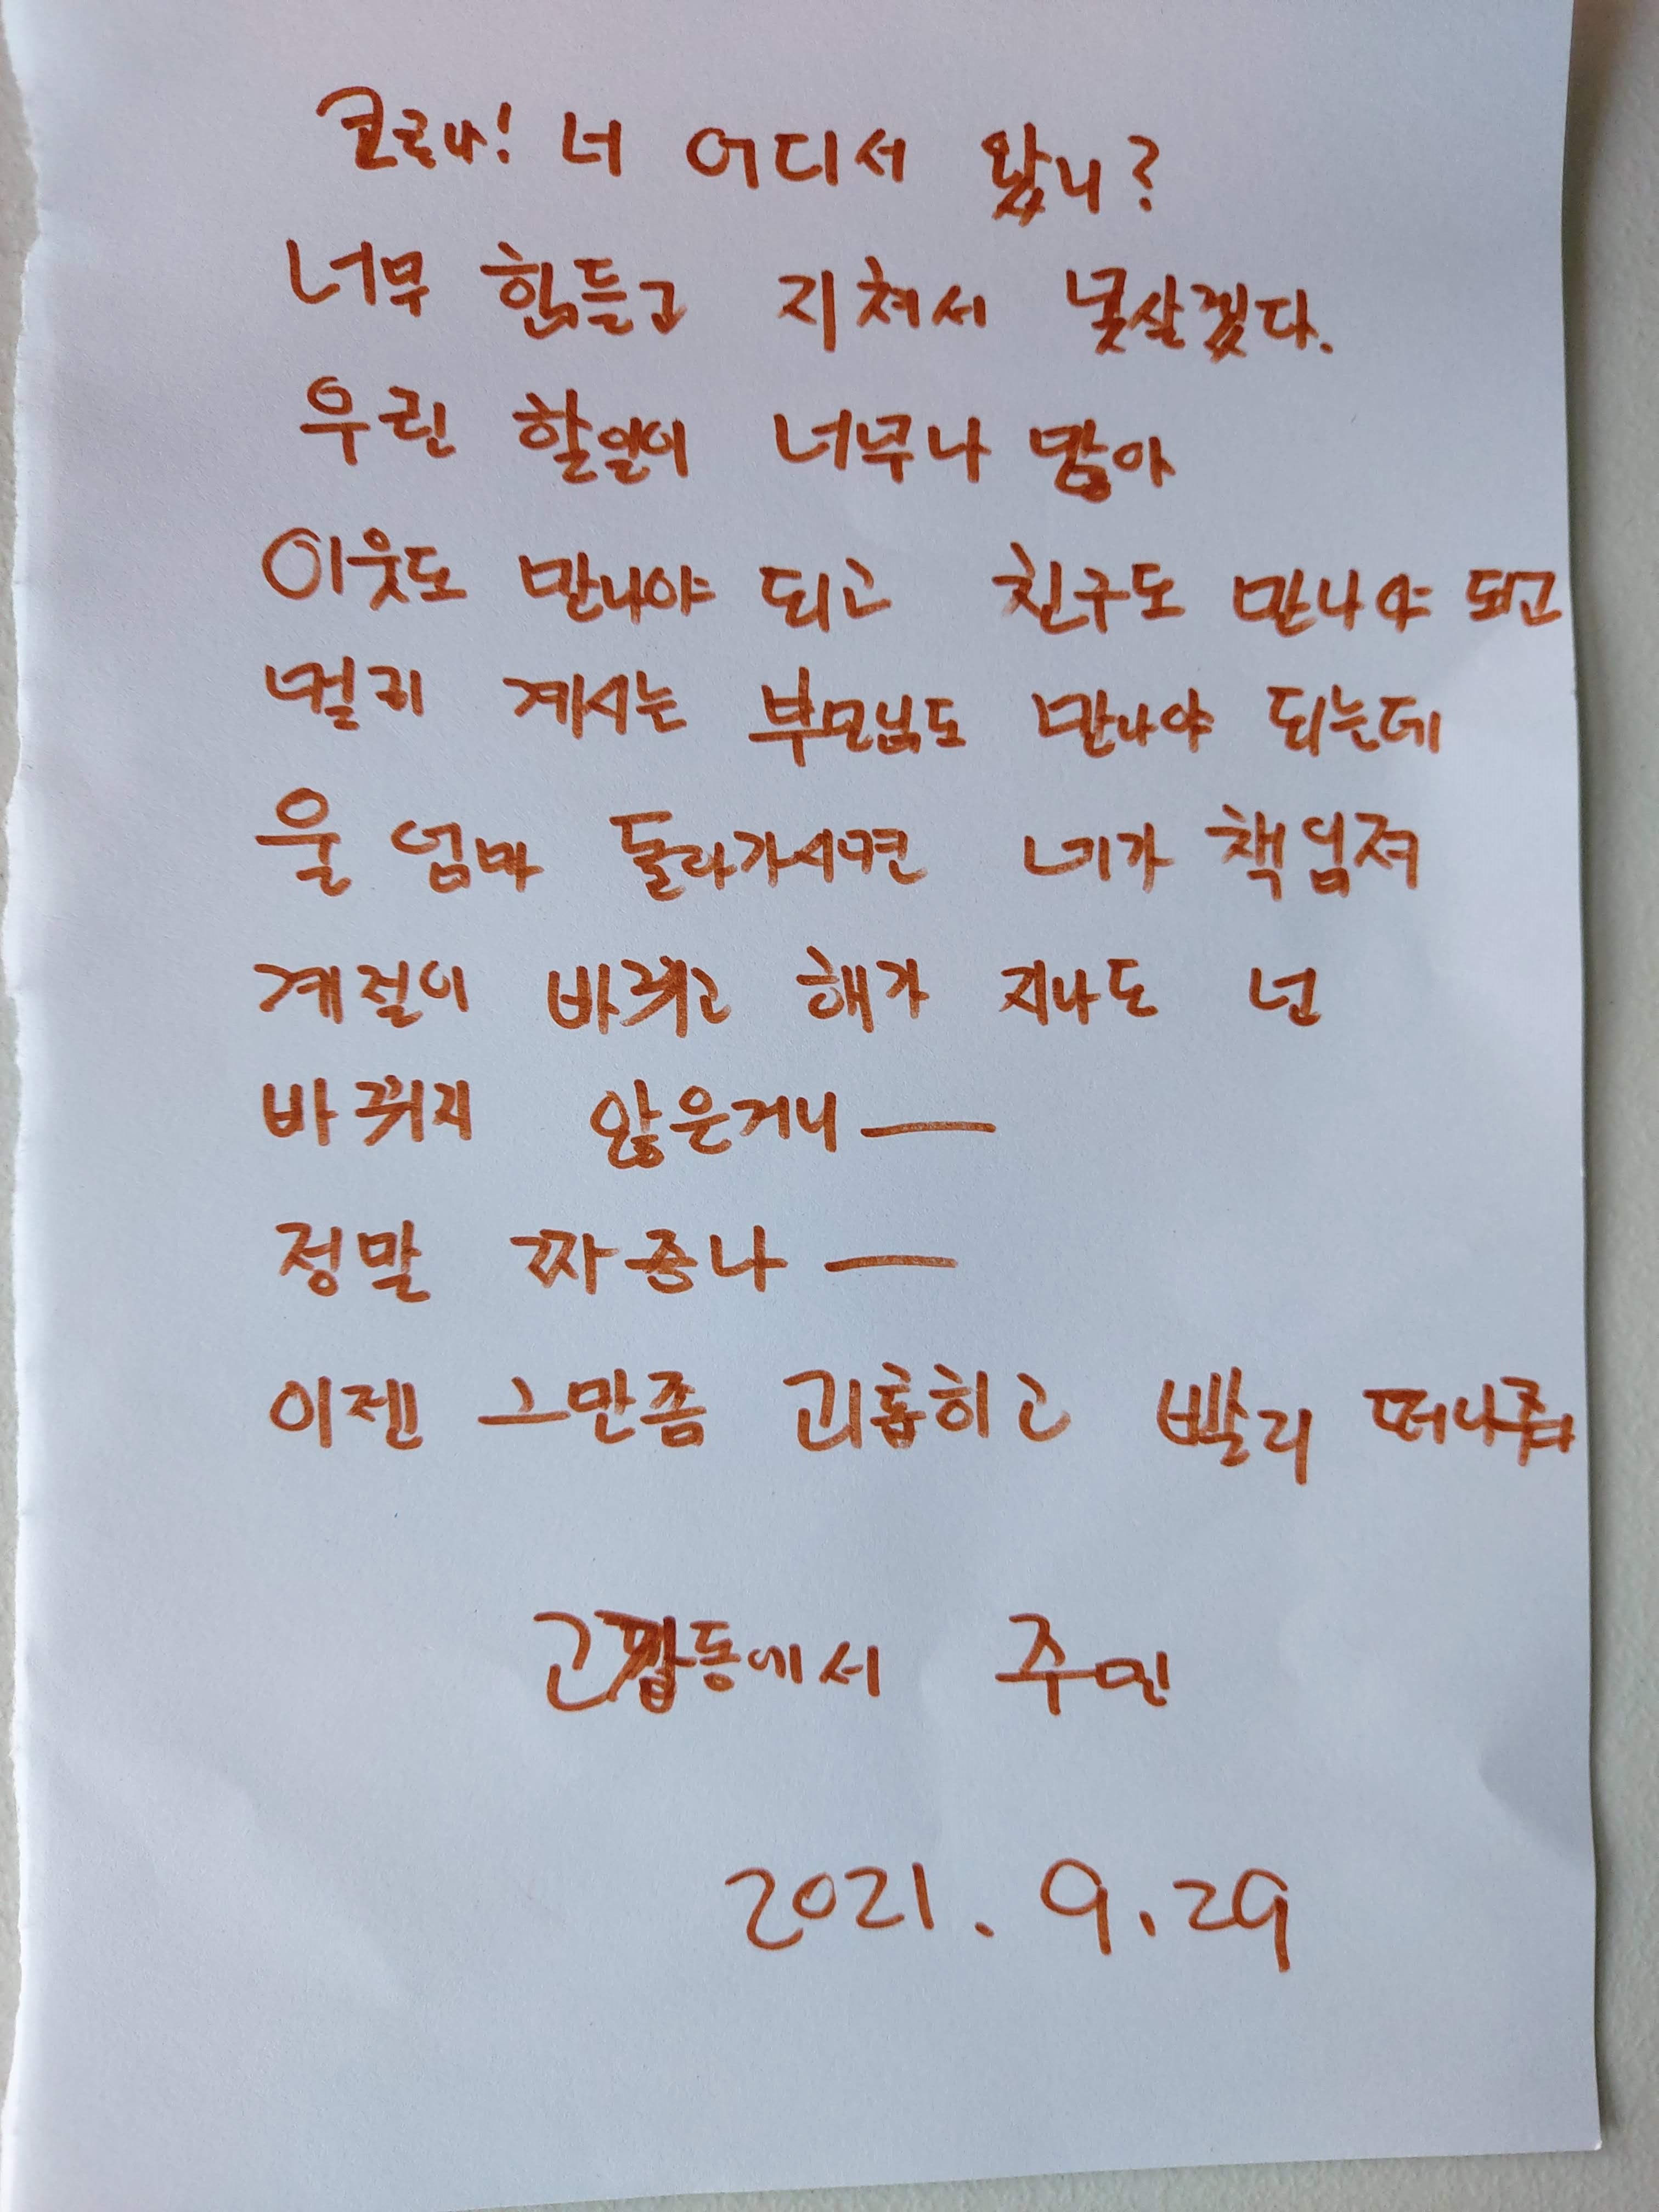 코로나! 너 어디서 왔니?
너무 힘들고 지쳐서 못살겠다.
우린 할일이 너무나 많아
이웃도 만나야 되고 친구도 만나야 되고
멀리 계시는 부모님도 만나야 되는데
울 엄마 돌아가시면 네가 책임져
계절이 바뀌고 해가 지나도 넌
바뀌지 않은거니 —
정말 짜증나 —
이젠 그만좀 괴롭히고 빨리 떠나줘
주민
2021. 9. 29